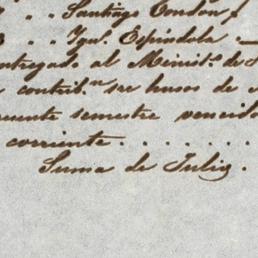 " " Santiago Condon
" " Ygnl. Espindola
entregado al Minist.o de
contrib.n sre husos de
presente semestre vencido
corriente . . . . . .
Suma de Julio.